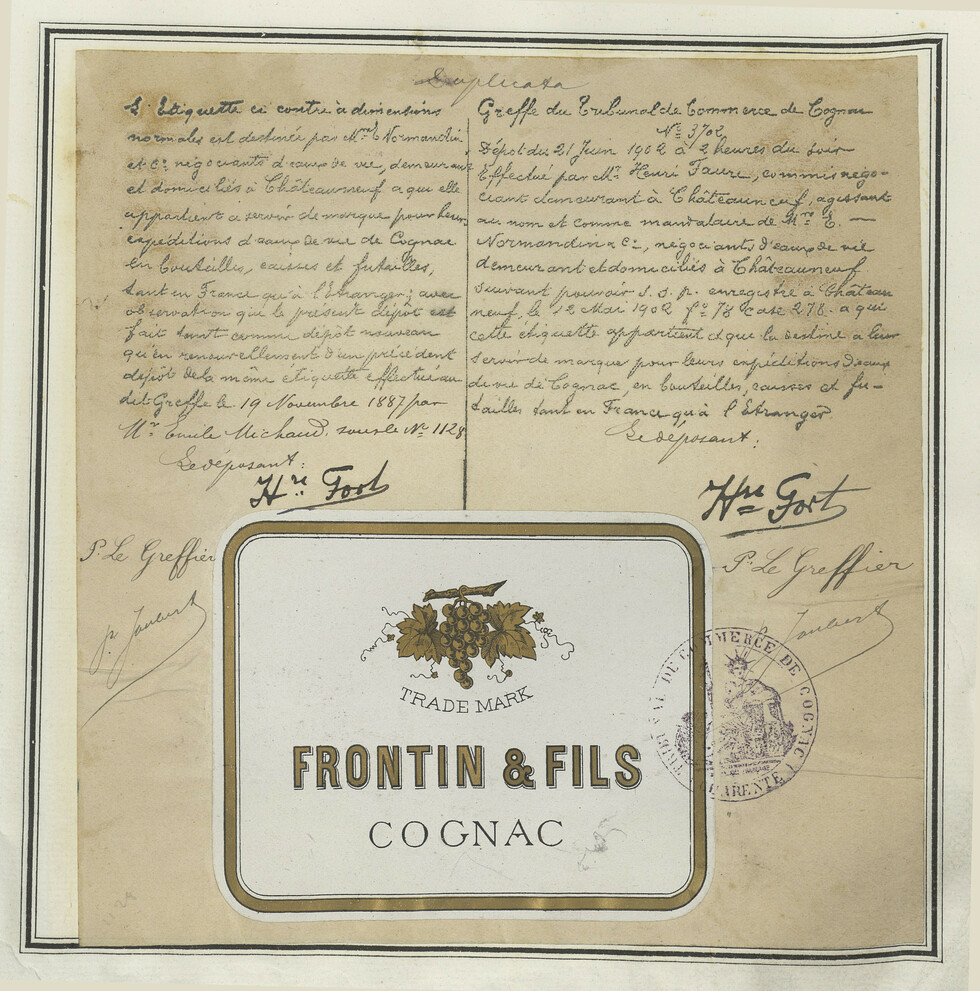 Duplicata
L'Etiquette ci contre à dimensions
normales est destinée par Mrs E Normandin
et Cie négociants d'eaux de vie, demeurant
et domiciliés à Châteauneuf a qui elle
appartient a servir de marque pour leurs
expéditions d'eaux de vie de Cognac
en bouteilles, caisses et futailles,
tant en France qu'à l'Etranger; avec
observation que le présent dépôt est
fait tant comme dépôt nouveau
qu'en renouvellement d'un précédent
dépôt de la même étiquette effectué au
dit Greffe le 19 Novembre 1887 par
Mr Emile Michaud, sous le No 1128
Le déposant:
Hre Fort
P. Le Greffier
p. Joubert
Greffe du Tribunal de Commerce de Cognac
No 3702
Dépôt du 21 Juin 1902 à 2 heures du soir
Effectué par Mr Henri Faure, commis négo-
ciant demeurant à Châteauneuf, agissant
au nom et comme mandataire de Mrs E. —
Normandin & Cie, négociants d'eaux de vie
demeurant et domiciliés à Châteauneuf
suivant pouvoir s.s.p. enregistré à Château
neuf, le 12 Mai 1902 fo 78 case 278. a qui
cette étiquette appartient et qui la destine a leur
servir de marque pour leurs expéditions d'eaux
de vie de Cognac, en bouteilles, caisses et fu-
tailles tant en France qu'à l'Etranger
Le déposant:
Hre Fort
P. Le Greffier
Joubert
TRIBUNAL DE COMMERCE DE COGNAC
CHARENTE
TRADE MARK
FRONTIN & FILS
COGNAC